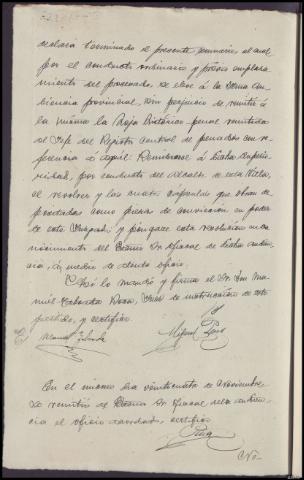 declara terminado el presente sumario el cual
por el conducto ordinario y previo emplaza
miento del procesado, se eleve á la Ilma Au
diencia provincial, sin perjuicio de remitir á
la misma la Hoja Histórico penal remitida
al Jefe del Registro Central de penados con re
ferencia á aquel: Remítanse á dicha Superio
ridad, por conducto del Alcalde de esta Villa,
el revolver y las cuatro cápsulas que obran de
positadas como piezas de convicción en poder
de este Juzgado; y póngase esta resolución en co
nocimiento del Excmo Sr Fiscal de dicha Audien
cia, á medio de atento oficio.
Así lo mandó y firma el Sr. Don Ma
nuel Taboada Roca, Juez de instrucción de este
partido, y certifico
Manuel Taboada Miguel
En el mismo día veinticuatro de Noviembre
se remitió al Excmo Sr Fiscal de la Audien
cia el oficio acordado, certifico